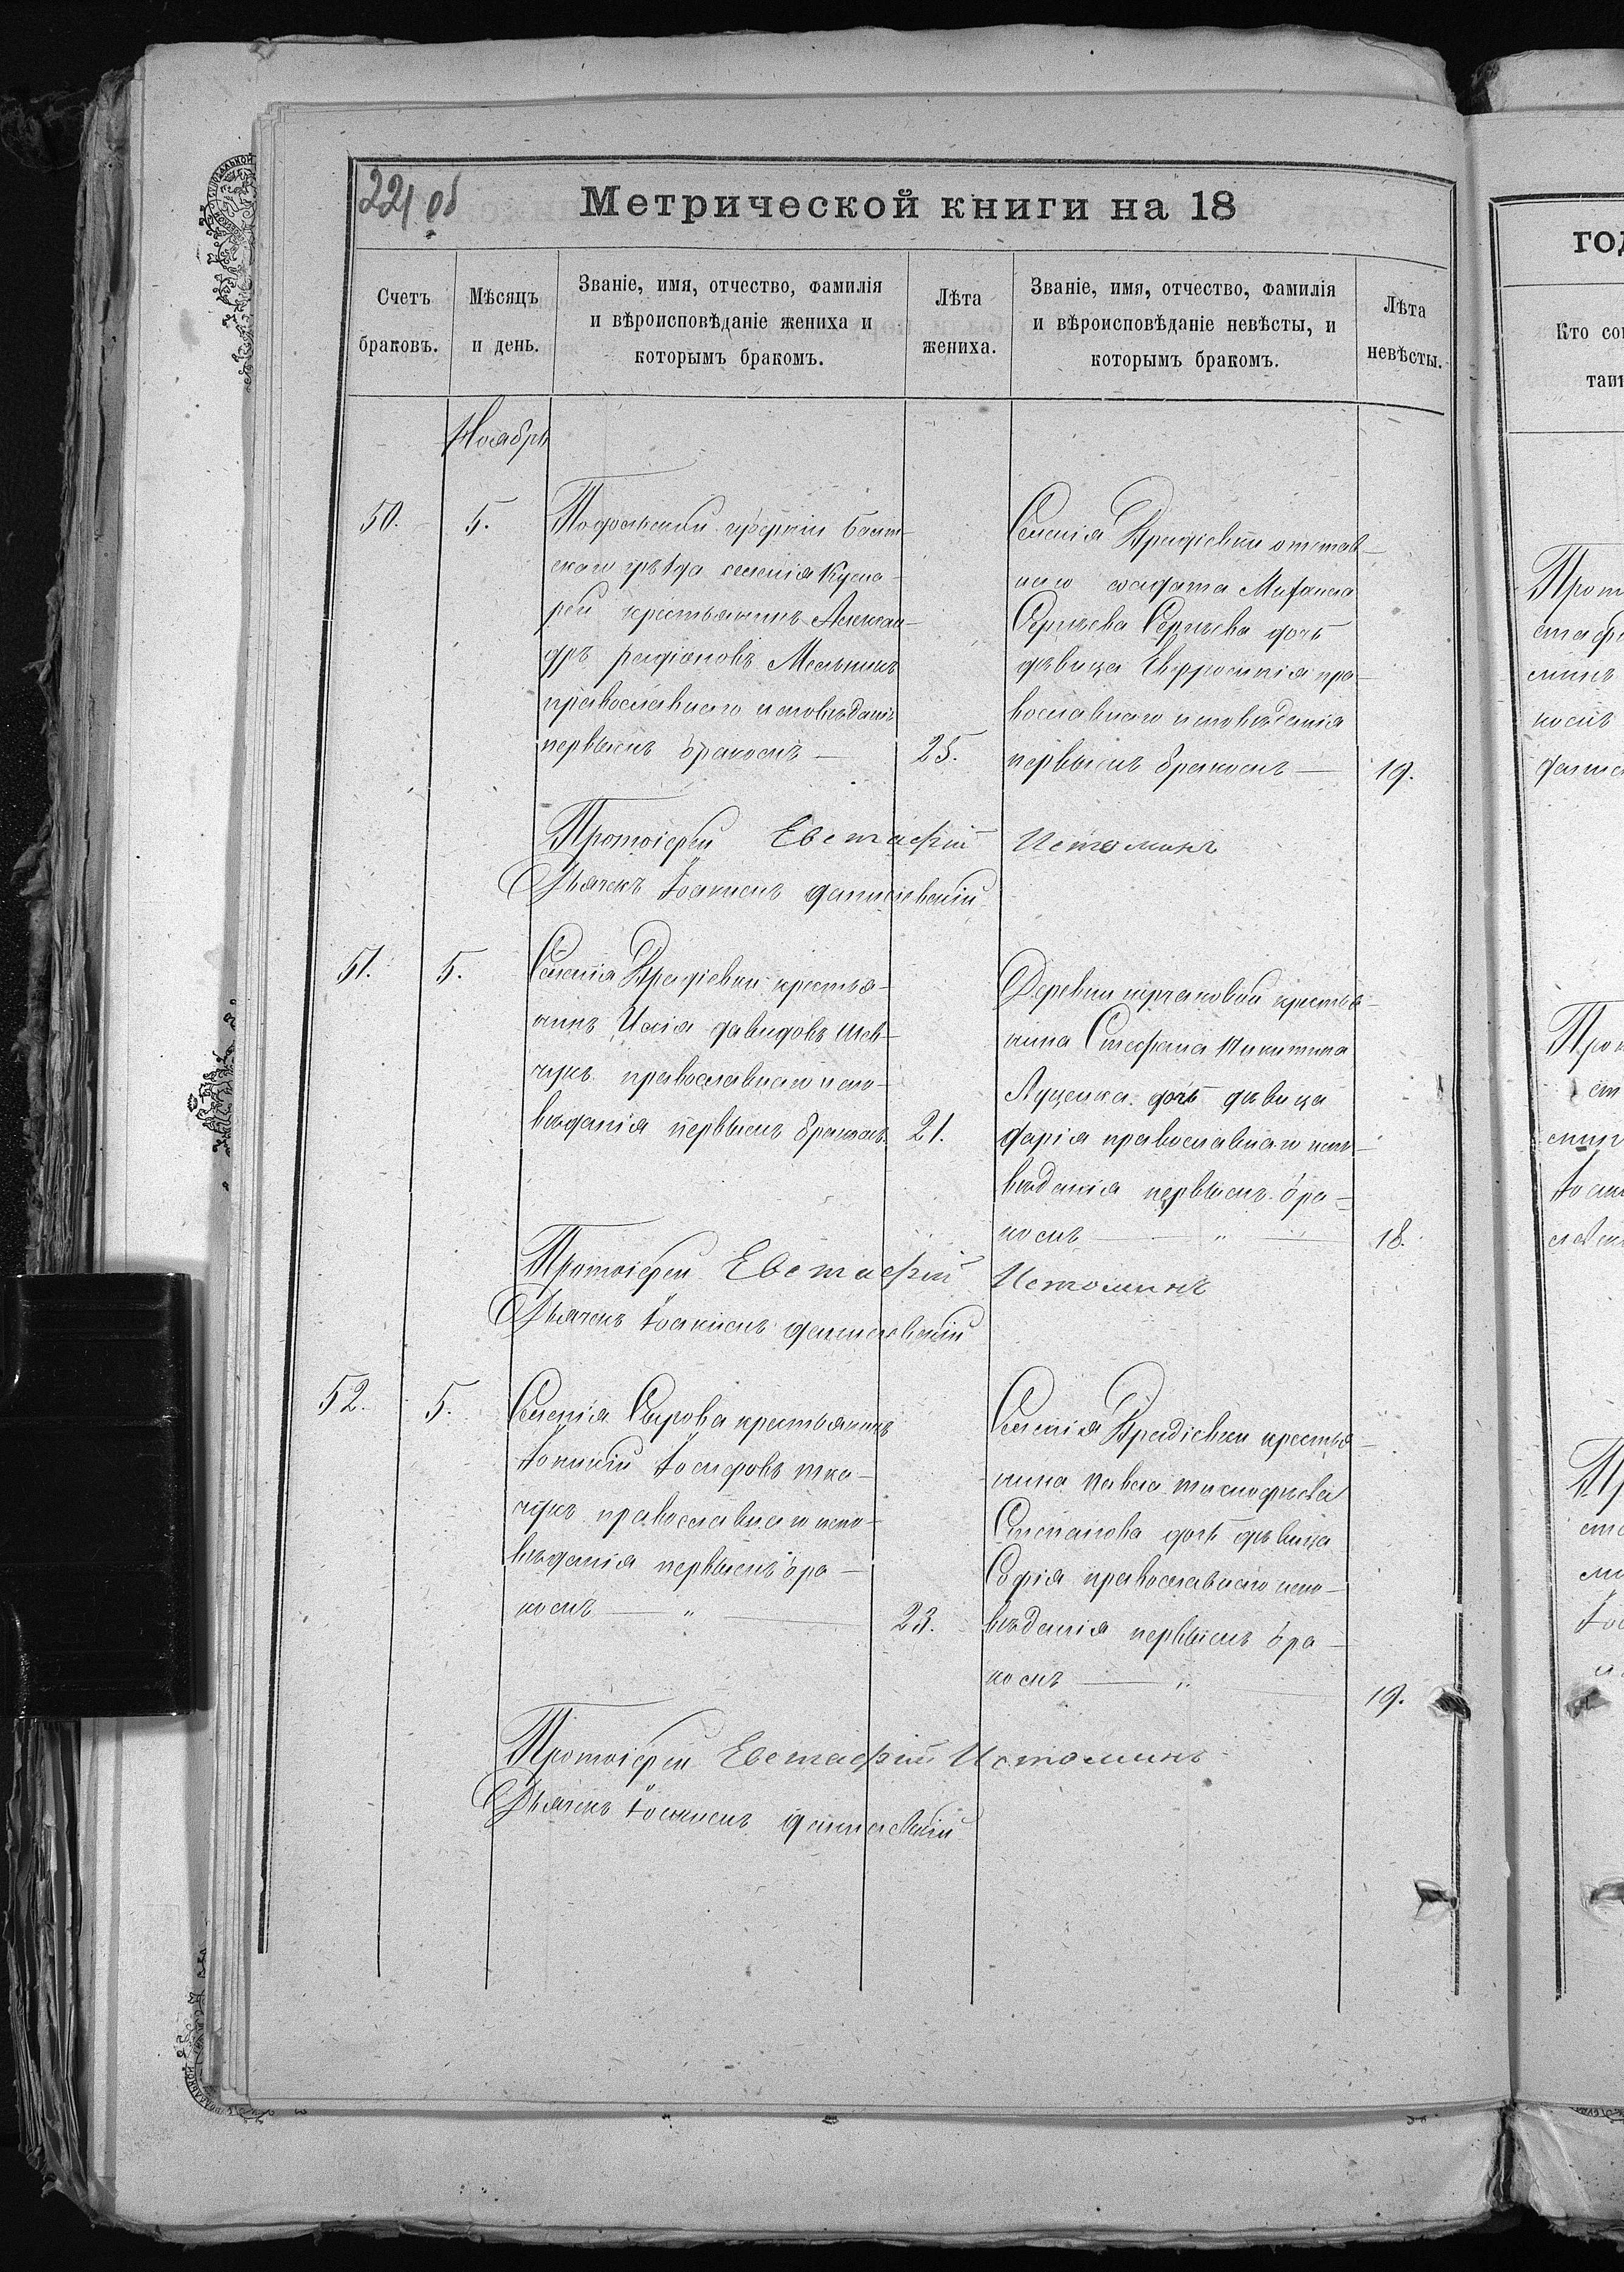 221 об
Метрической книги на 18
Счетъ браковъ.
Мѣсяцъ и день.
Званіе, имя, отчество, фамилія
и вѣроисповѣданіе жениха и
которымъ бракомъ.
Лѣта жениха.
Званіе, имя, отчество, фамилія
и вѣроисповѣданіе невѣсты, и
которымъ бракомъ.
Лѣта невѣсты.
Ноябрь
50.
5.
Подольской губерніи Балт-
скаго уѣзда селенія
крестьянинъ Александръ
Радіоновъ Мельникъ
православнаго исповѣданія
первымъ бракомъ —
25.
Селенія отстав-
наго солдата Михаила
Сергѣева Сергѣева дочь
дѣвица Евфросинія пра-
вославнаго исповѣданія
первымъ бракомъ —
19.
Протоіерей Евстафій Истоминъ
Дьячекъ Іоакимъ Данилевскій
51.
5.
Селенія крестья-
нинъ Исаія Давидовъ Шев-
чукъ православнаго испо-
вѣданія первымъ бракомъ.
21.
Деревни крестья-
нина Стефана Никитина
Луценка дочь дѣвица
Дарія православнаго испо-
вѣданія первымъ бра-
комъ — „ —
18.
Протоіерей Евстафій Истоминъ
Дьячекъ Іоакимъ Данилевскій
52.
5.
Селенія Сырова крестьянинъ
Іосифовъ Тка-
чукъ православнаго испо-
вѣданія первымъ бра-
комъ — „ —
23.
Селенія крестья-
нина Павла Тимофѣева
Степанова дочь дѣвица
Софія православнаго испо-
вѣданія первымъ бра-
комъ — „ —
19.
Протоіерей Евстафій Истоминъ
Дьячекъ Іоакимъ Данилевскій